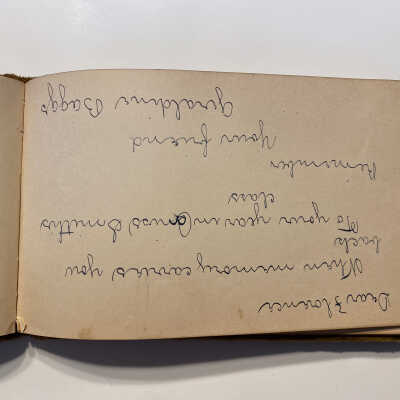 Dear Florence
When memory carries you
back
To your year in Miss Smiths
class
Remember
Your friend
Geraldine Baggs